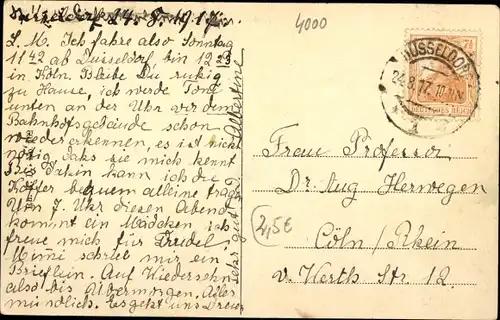 Düsseldorf 24.8.1917.
L. M. Ich fahre also Sonntag
11 42 ab Düsseldorf, bin 12 53
in Köln. Bleibe Du ruhig
zu Hause, ich werde Toni
unten an der Uhr vor dem
Bahnhofsgebäude schon
wiedererkennen, es ist nicht
nötig, daß sie mich kennt
Bis dahin kann ich die
Koffer bequem alleine trag
Um 7. Uhr diesen Abend
kommt ein Mädchen, ich
freue mich für Trudel.
Mimi schrieb mir ein
Brieflein. Auf Wiedersehn
also bis übermorgen, Alles
mündlich. Es geht uns Dreien
sehr gut
Albertine
4000
DÜSSELDORF
24.8.17. 10-11
1
7½
DEUTSCHES REICH
Frau Professor
Dr. Aug Herwegen
2,5€
Cöln/Rhein
v. Werth Str. 12.